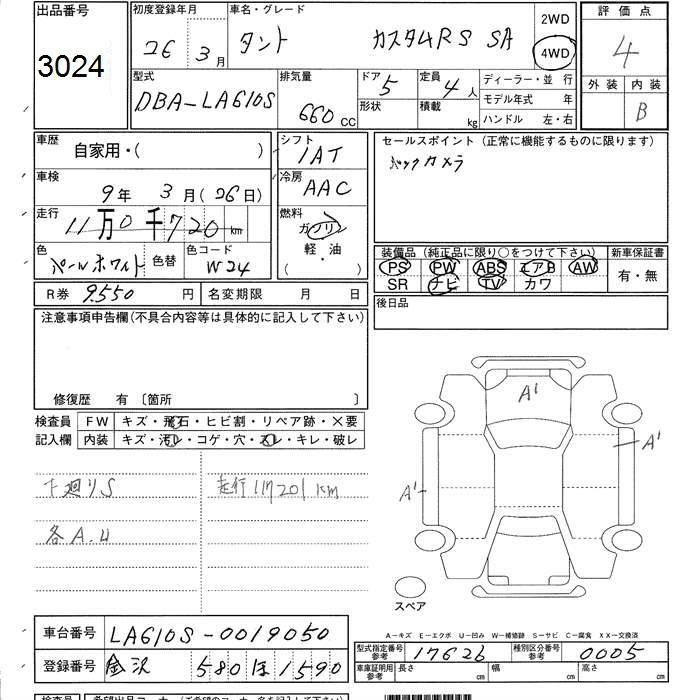 出品番号
3024
初度登録年月
26 3月
車名・グレード
タント カスタムRS SA
2WD
4WD
評価点
4
外装 内装
B
型式
DBA-LA610S
排気量
660 CC
ドア 5
形状
定員 4人
積載 kg
ディーラー・並 行
モデル年式 年
ハンドル 左・右
車歴
自家用・( )
シフト
IAT
セールスポイント (正常に機能するものに限ります)
バックカメラ
車検
9年 3月(26日)
冷房
AAC
走行
11万0千720km
燃料
ガソリン
軽・油
( )
色
パールホワイト
色替
色コード
W24
装備品 (純正品に限り○をつけて下さい)
PS PW ABS エアB AW
SR ナビ TV カワ
新車保証書
有・無
R券 9,550 円
名変期限 月 日
後日品
注意事項申告欄(不具合内容等は具体的に記入して下さい)
修復歴 有 〔箇所 〕
検査員
記入欄
FW キズ・飛石・ヒビ割・リペア跡・×要
内装 キズ・汚レ・コゲ・穴・スレ・キレ・破レ
下廻りS
走行111201km
各A.U
A'
A'
A'
スペア
A-キズ E-エクボ U-凹み W-補修跡 S-サビ C-腐食 XX-交換済
車台番号 LA610S-0019050
登録番号 金沢 580 ほ 1590
型式指定番号
参考
17626
種別区分番号
参考
0005
車庫証明用
参考
長さ cm 幅 cm 高さ cm
検査員
希望出品コーナー(ご希望のコーナー名を記入して下さい)